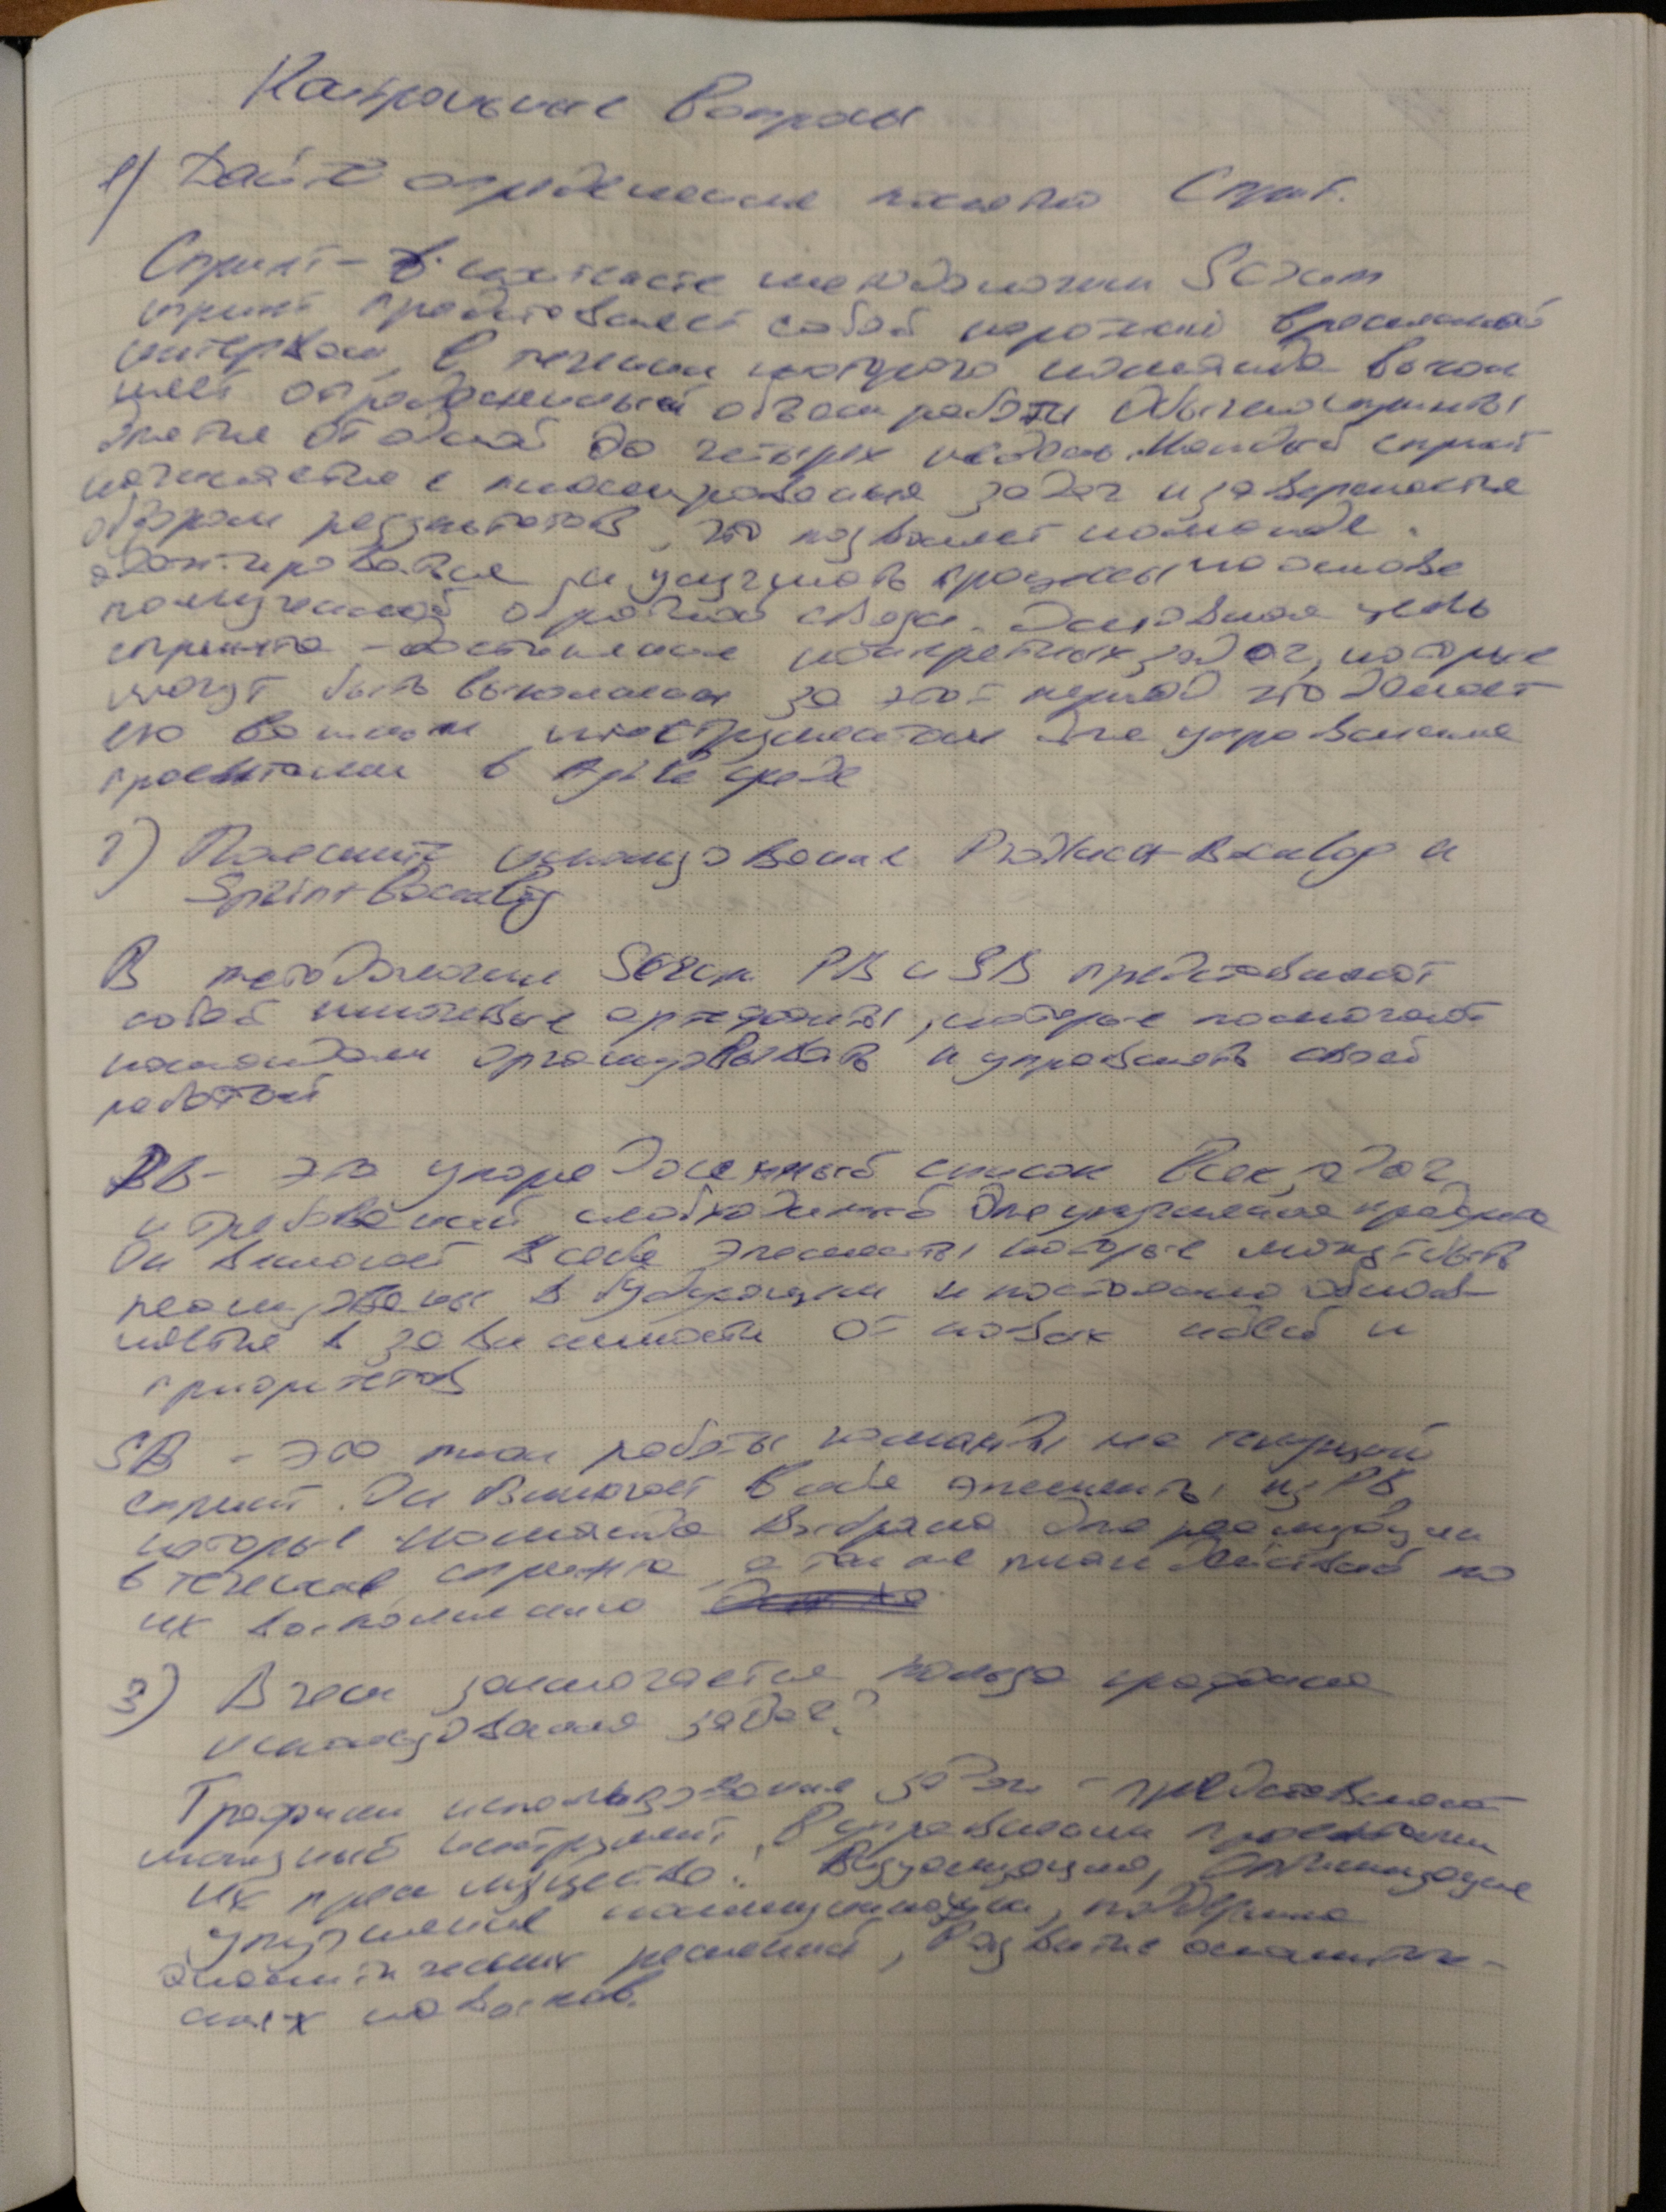 Контрольные вопросы
1) Дайте определение понятия Спринт.
Спринт – в контексте методологии Scrum
спринт представляет собой короткий временной
интервал, в течении которого команда выпол
няет определенный объем работы Обычно спринты
длятся от одной до четырех недель. Каждый спринт
начинается с планирования задач и завершается
обзором результатов, это позволяет команде
адаптироваться и улучшать процессы на основе
полученной обратной связи. Основная цель
спринта – достижение конкретных задач, которые
могут быть выполнены за этот период это делает
его важным инструментом для управления
проектами в Agile среде
2) Поясните использование Product Backlog и
Sprint Backlog
В методологии Scrum PB и SB представляют
собой ключевые артефакты, которые помогают
командам организовывать и управлять своей
работой
PB – это упорядоченный список всех задач
и требований необходимый для улучшения продукта
Он включает в себя элементы которые могут быть
реализованы в будущем и постоянно обнов-
ляется в зависимости от новых идей и
приоритетов
SB – это план работы команды на текущий
спринт. Он включает в себя элементы из PB,
которые команда выбрала для реализации
в течение спринта, а так же план действий по
их выполнению
3) В чем заключается польза графика
использования задач?
Графики использования задач – представляют
мощный инструмент в управлении проектами
их преимущества: Визуализация, Оптимизация
улучшение коммуникации, поддержка
аналитических решений, Развитие аналитиче-
ских навыков.